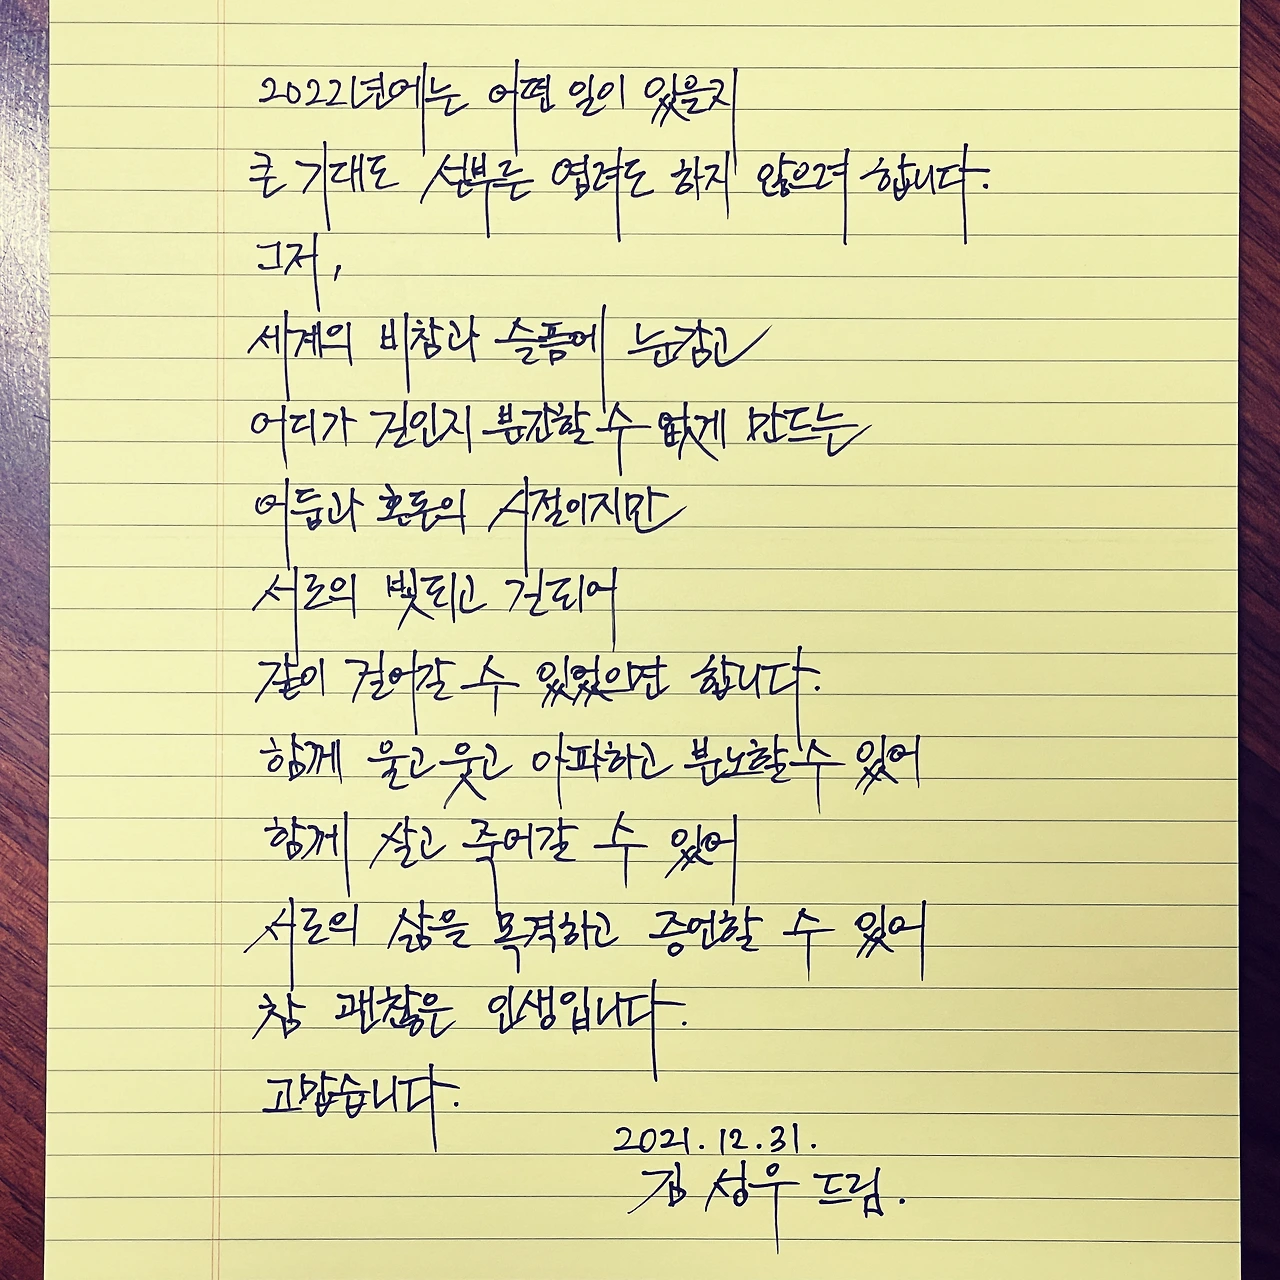 2022년에는 어떤 일이 있을지
큰 기대도 섣부른 염려도 하지 않으려 합니다.
그저,
세계의 비참과 슬픔에 눈감고
어디가 길인지 분간할 수 없게 만드는
어둠과 혼돈의 시절이지만
서로의 빛되고 길되어
같이 걸어갈 수 있었으면 합니다.
함께 울고 웃고 아파하고 분노할 수 있어
함께 살고 죽어갈 수 있어
서로의 삶을 목격하고 증언할 수 있어
참 괜찮은 인생입니다.
고맙습니다.
2021. 12. 31.
김성우 드림.